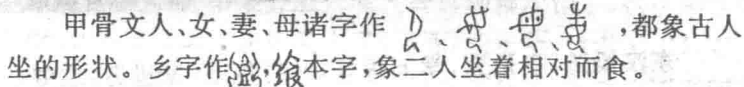 甲骨文人、女、妻、母诸字作、、、,都象古人
坐的形状。乡字作,飨本字,象二人坐着相对而食。